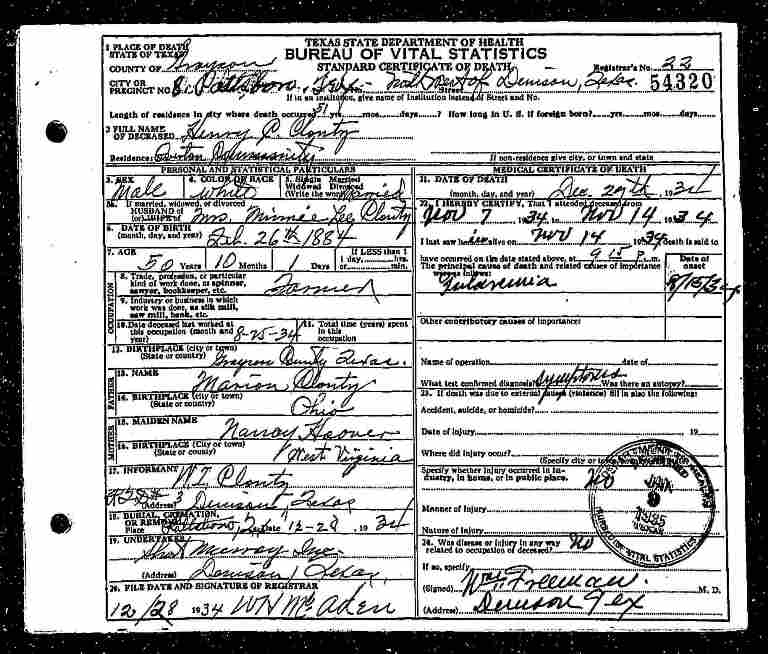 TEXAS STATE DEPARTMENT OF HEALTH
BUREAU OF VITAL STATISTICS
STANDARD CERTIFICATE OF DEATH
1 PLACE OF DEATH
STATE OF TEXAS
COUNTY OF Grayson
Registrar's No. 22
CITY OR
PRECINCT NO. of Denison, Texas
Street
54320
If in an institution, give name of institution instead of Street and No.
Length of residence in city where death occurred yrs. mos. days? How long in U. S. if foreign born? yrs. mos. days
2 FULL NAME
OF DECEASED Henry C. Plontz
Residence: Community
If non-residence give city, or town and state
PERSONAL AND STATISTICAL PARTICULARS
3. SEX Male
4. COLOR OR RACE White
5. Single Married
Widowed Divorced
(Write the word) Married
5a. If married, widowed, or divorced
HUSBAND of
(or) WIFE of Mrs. Minnie Lee Plontz
6. DATE OF BIRTH
(month, day, and year) Feb. 26th 1884
7. AGE
50 Years 10 Months 1 Days
If LESS than 1
1 day, hrs.
or min.
OCCUPATION
8. Trade, profession, or particular
kind of work done, as spinner,
sawyer, bookkeeper, etc. Farmer
9. Industry or business in which
work was done, as silk mill,
saw mill, bank, etc.
10. Date deceased last worked at
this occupation (month and
year) 8-25-34
11. Total time (years) spent
in this
occupation
12. BIRTHPLACE (city or town)
(State or country) Grayson County Texas.
FATHER
13. NAME Marion Plontz
14. BIRTHPLACE (City or town)
(State or country) Ohio
MOTHER
15. MAIDEN NAME Nancy Hoover
16. BIRTHPLACE (City or town)
(State or country) West Virginia
17. INFORMANT Plontz
3 Denison Texas
18. BURIAL, CREMATION,
OR REMOVAL
Place Date 12-28, 1934
19. UNDERTAKER
(Address) Denison, Texas
20. FILE DATE AND SIGNATURE OF REGISTRAR
12/28 1934 W N McAden
MEDICAL CERTIFICATE OF DEATH
21. DATE OF DEATH
(month, day, and year) Dec. 1934
22. I HEREBY CERTIFY, That I attended deceased from
Nov 7 1934, to Nov 14 1934
I last saw him alive on Nov 14 1934 death is said to
have occurred on the date stated above, at 9 15 P. m.
The principal cause of death and related causes of importance
were as follows:
Tularemia
Date of
onset
8/15/34
Other contributory causes of importance:
Name of operation date of
What test confirmed diagnosis? Symptoms Was there an autopsy?
23. If death was due to external causes (violence) fill in also the following:
Accident, suicide, or homicide?
Date of injury 19
Where did injury occur?
(Specify city or
Specify whether injury occurred in in-
dustry, in home, or in public place. No
Manner of injury
Nature of injury
24. Was disease or injury in any way
related to occupation of deceased? No
If so, specify
(Signed) Freeman M. D.
(Address) Denison Tex
JAN
9
1935
BUREAU OF VITAL STATISTICS